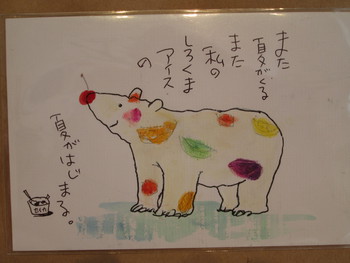 また
夏がくる
また
私の
しろくま
アイス
の
夏がはじまる。